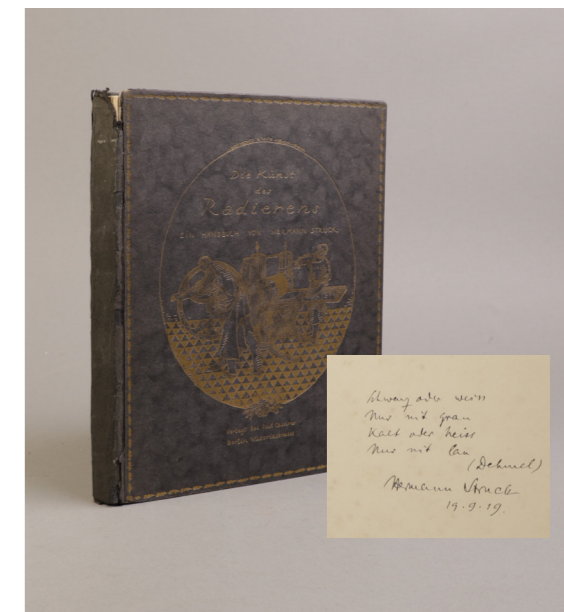 Die Kunst
des
Radierens
EIN HANDBUCH VON HERMANN STRUCK
Verlegt bei Paul Cassirer
Berlin
Schwarz oder weiss
Nur nit grau
Kalt oder heiss
Nur nit lau
(Dehmel)
Hermann Struck
19.9.19